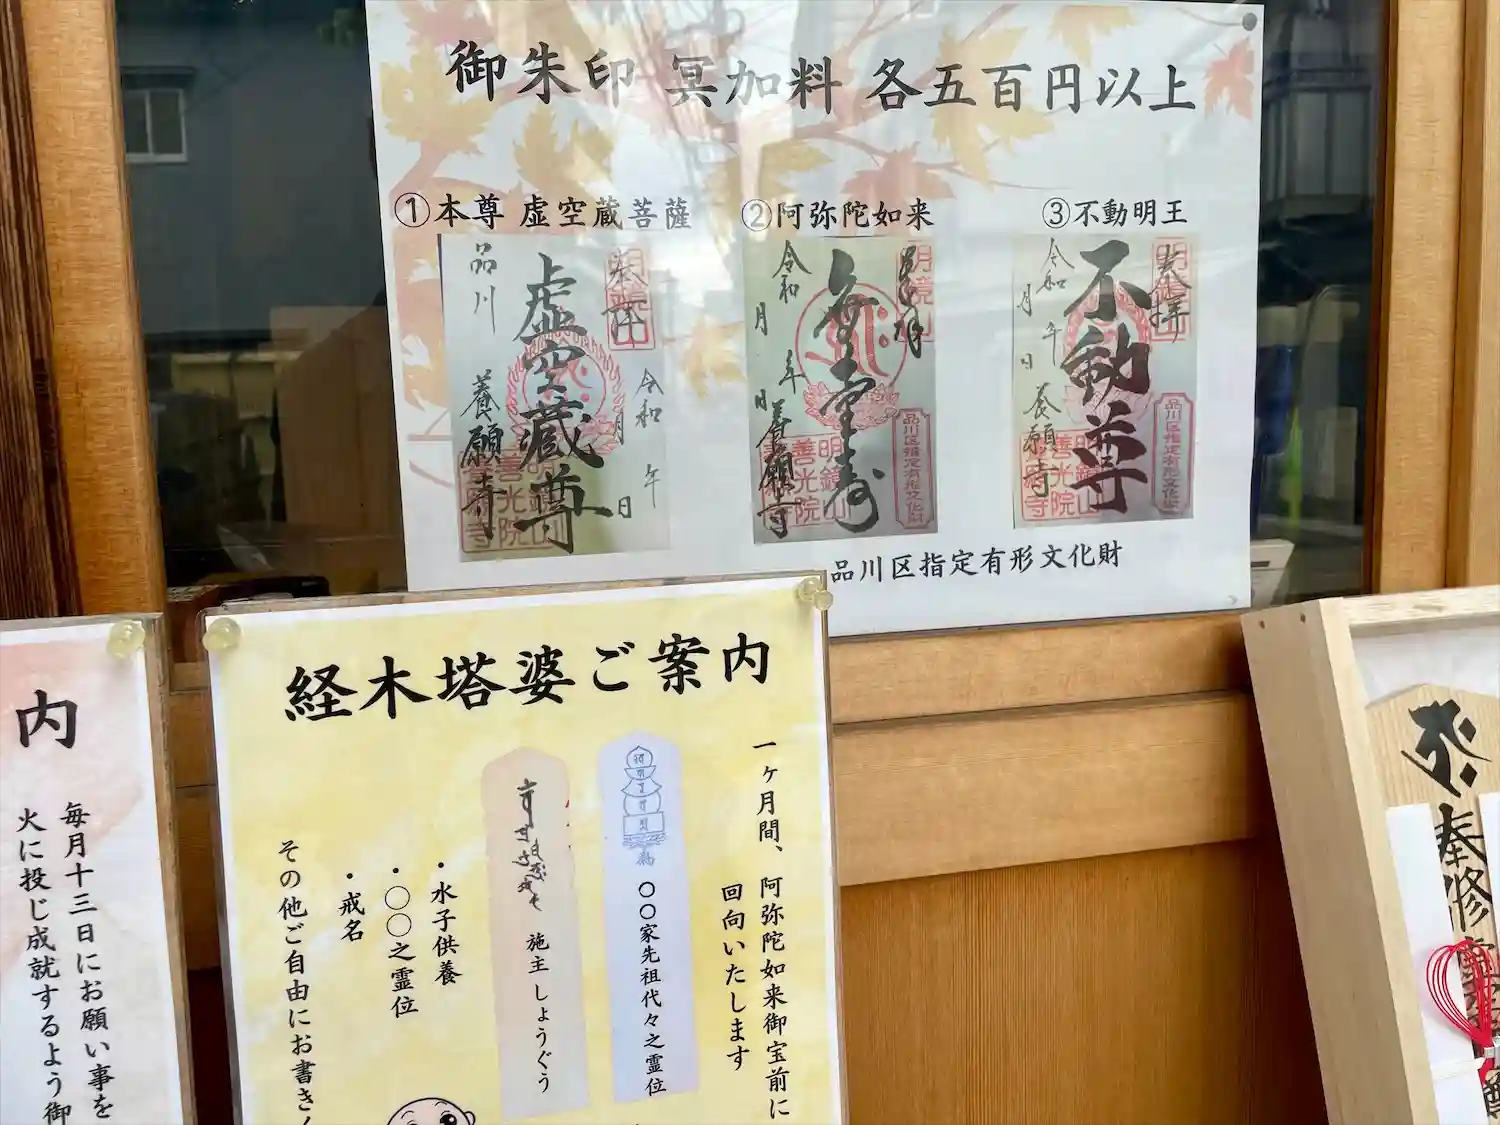 御朱印 冥加料 各五百円以上
①本尊 虚空蔵菩薩
②阿弥陀如来
③不動明王
奉拝
令和 年 月 日
虚空蔵尊
品川 養願寺
明鏡山
善光院
養願寺
奉拝
明鏡山
無量寿
令和 年 月 日
養願寺
明鏡山
善光院
品川区指定有形文化財
奉拝
不動尊
令和 年 月 日
養願寺
明鏡山
善光院
品川区指定有形文化財
品川区指定有形文化財
経木塔婆ご案内
一ヶ月間、阿弥陀如来御宝前に
回向いたします
〇〇家先祖代々之霊位
施主 しょうぐう
・水子供養
・〇〇之霊位
・戒名
その他ご自由にお書き
内
毎月十三日にお願い事を
火に投じ成就するよう御
奉修